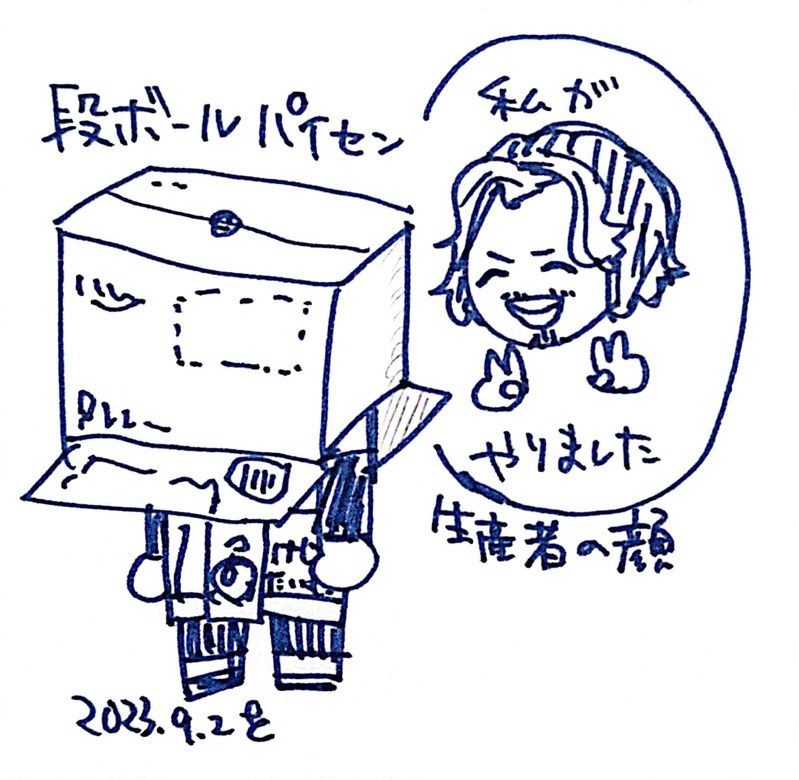 段ボールパイセン
私が
やりました
生産者の顔
2023.9.2